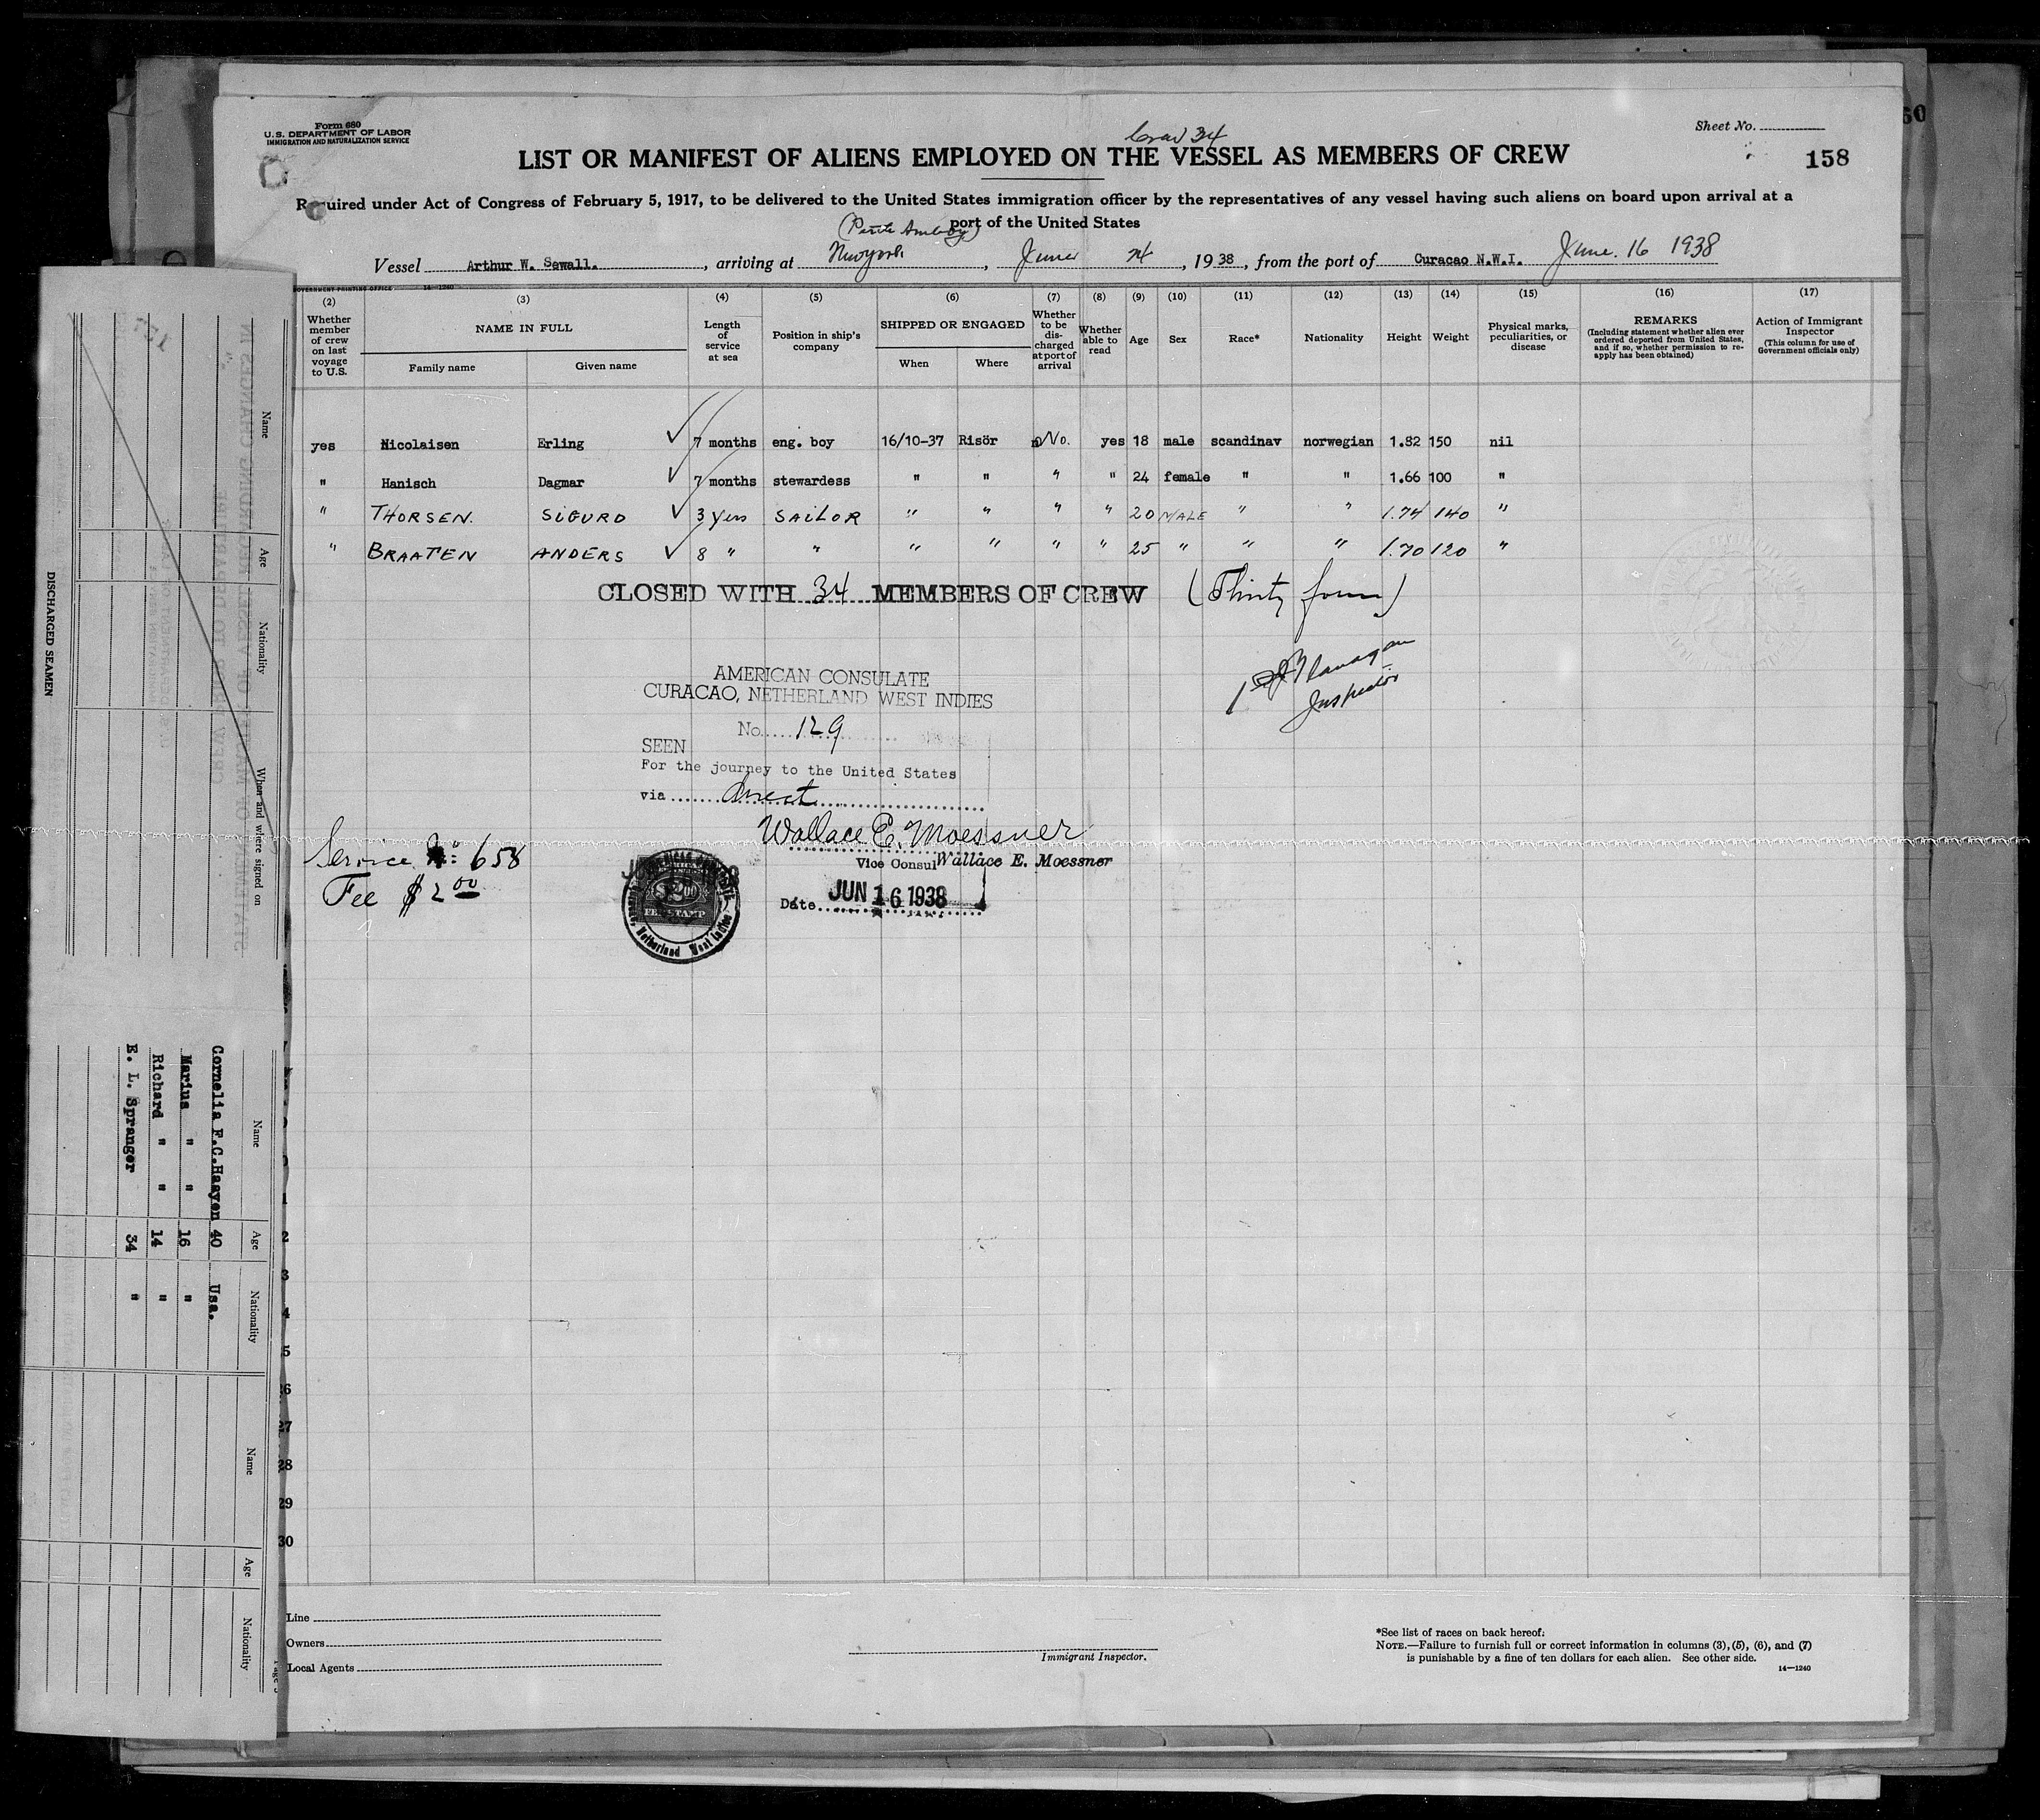 Form 680
U.S. DEPARTMENT OF LABOR
IMMIGRATION AND NATURALIZATION SERVICE
Sheet No.
Crew 34
LIST OR MANIFEST OF ALIENS EMPLOYED ON THE VESSEL AS MEMBERS OF CREW
158
Required under Act of Congress of February 5, 1917, to be delivered to the United States immigration officer by the representatives of any vessel having such aliens on board upon arrival at a
port of the United States
(Perth Amboy)
Vessel Arthur W. Sewall. , arriving at New York , June 24 , 1938 , from the port of Curacao N.W.I. June. 16 1938
GOVERNMENT PRINTING OFFICE 14—1240
(2) (3) (4) (5) (6) (7) (8) (9) (10) (11) (12) (13) (14) (15) (16) (17)
Whether member of crew on last voyage to U.S.
NAME IN FULL
Family name Given name
Length of service at sea
Position in ship's company
SHIPPED OR ENGAGED
When Where
Whether to be discharged at port of arrival
Whether able to read
Age
Sex
Race*
Nationality
Height
Weight
Physical marks, peculiarities, or disease
REMARKS
(Including statement whether alien ever ordered deported from United States, and if so, whether permission to reapply has been obtained)
Action of Immigrant Inspector
(This column for use of Government officials only)
yes Nicolaisen Erling ✓ 7 months eng. boy 16/10-37 Risör No. yes 18 male scandinav norwegian 1.82 150 nil
" Hanisch Dagmar ✓ 7 months stewardess " " " " 24 female " " 1.66 100 "
" THORSEN. SIGURD ✓ 3 yers SAILOR " " " " 20 MALE " " 1.74 140 "
" BRAATEN ANDERS ✓ 8 " " " " " " 25 " " " 1.70 120 "
CLOSED WITH 34 MEMBERS OF CREW (Thirty four)
Flanagan
Inspector
AMERICAN CONSULATE
CURACAO, NETHERLAND WEST INDIES
No. 129
SEEN
For the journey to the United States
via direct
Wallace E. Moessner
Vice Consul Wallace E. Moessner
Date JUN 16 1938
Service No: 658
Fee $2.00
FEE STAMP
Netherland West Indies
DISCHARGED SEAMEN
Name Age Nationality When and where signed on
Name Age Nationality
Cornelia F.C.Haayen 40 Usa.
Marius " " 16 "
Richard " " 14 "
E. L. Spranger 34 "
Name Age Nationality
28
29
30
Line
Owners
Local Agents
Immigrant Inspector.
*See list of races on back hereof.
NOTE.—Failure to furnish full or correct information in columns (3), (5), (6), and (7)
is punishable by a fine of ten dollars for each alien. See other side.
14—1240